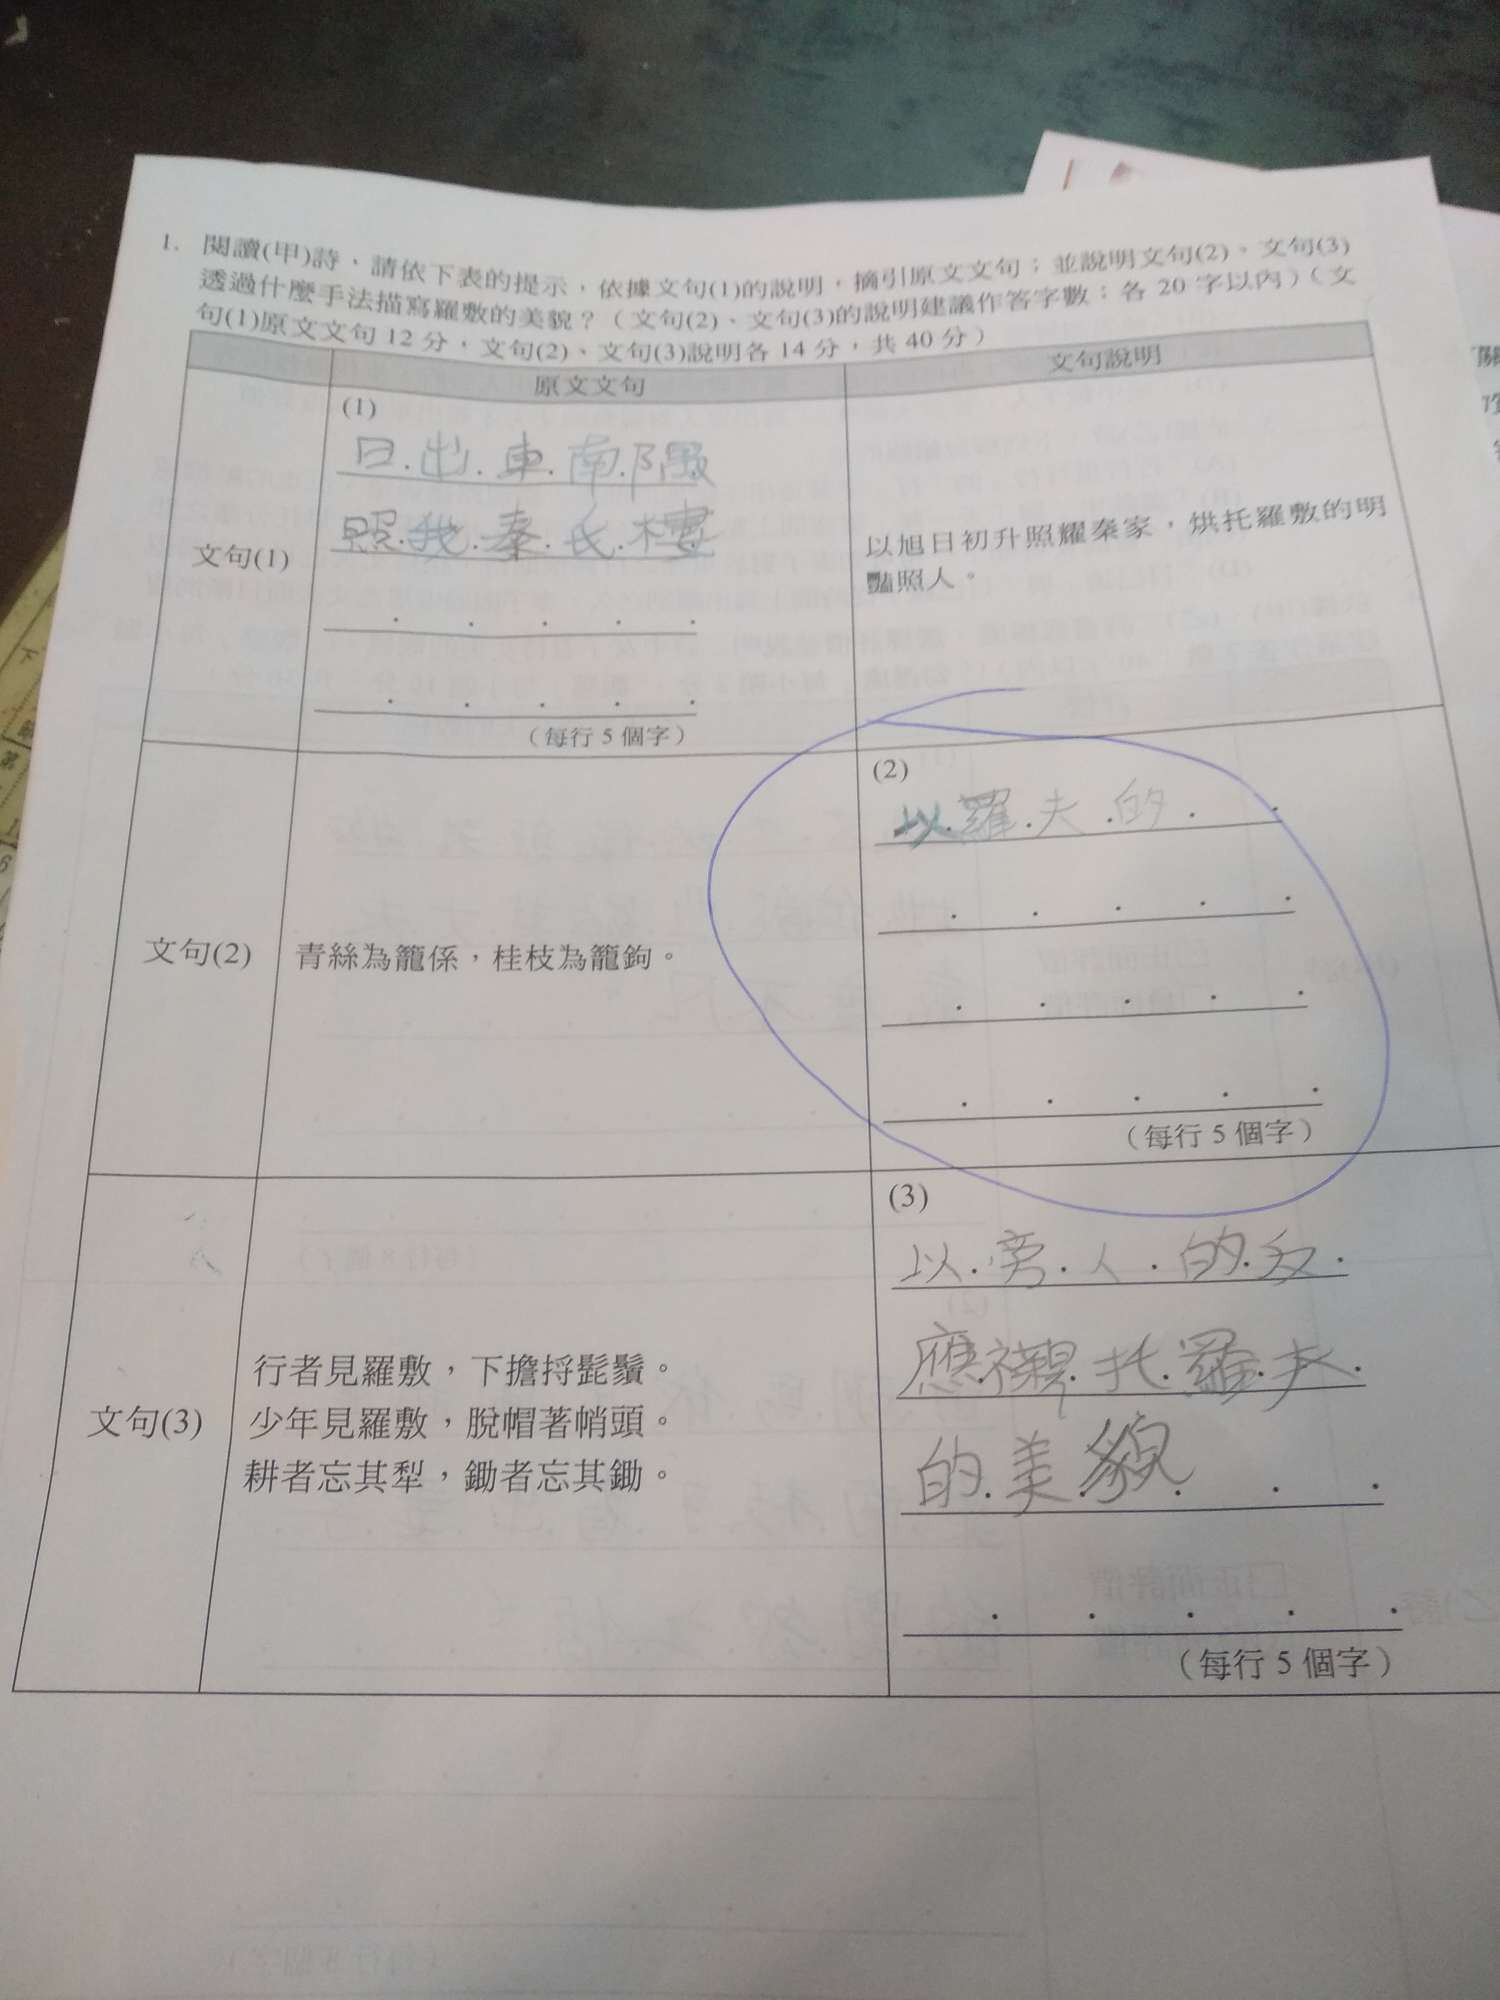 1. 閱讀(甲)詩，請依下表的提示，依據文句(1)的說明，摘引原文文句；並說明文句(2)、文句(3)
透過什麼手法描寫羅敷的美貌？（文句(2)、文句(3)的說明建議作答字數：各 20 字以內）（文
句(1)原文文句 12 分，文句(2)、文句(3)說明各 14 分，共 40 分）
原文文句 文句說明
(1)
日出東南隅
照我秦氏樓
文句(1)
以旭日初升照耀秦家，烘托羅敷的明
豔照人。
（每行 5 個字）
(2)
以羅夫的
文句(2) 青絲為籠係，桂枝為籠鉤。
（每行 5 個字）
(3)
以旁人的反
應襯托羅夫
的美貌
文句(3)
行者見羅敷，下擔捋髭鬚。
少年見羅敷，脫帽著帩頭。
耕者忘其犁，鋤者忘其鋤。
（每行 5 個字）